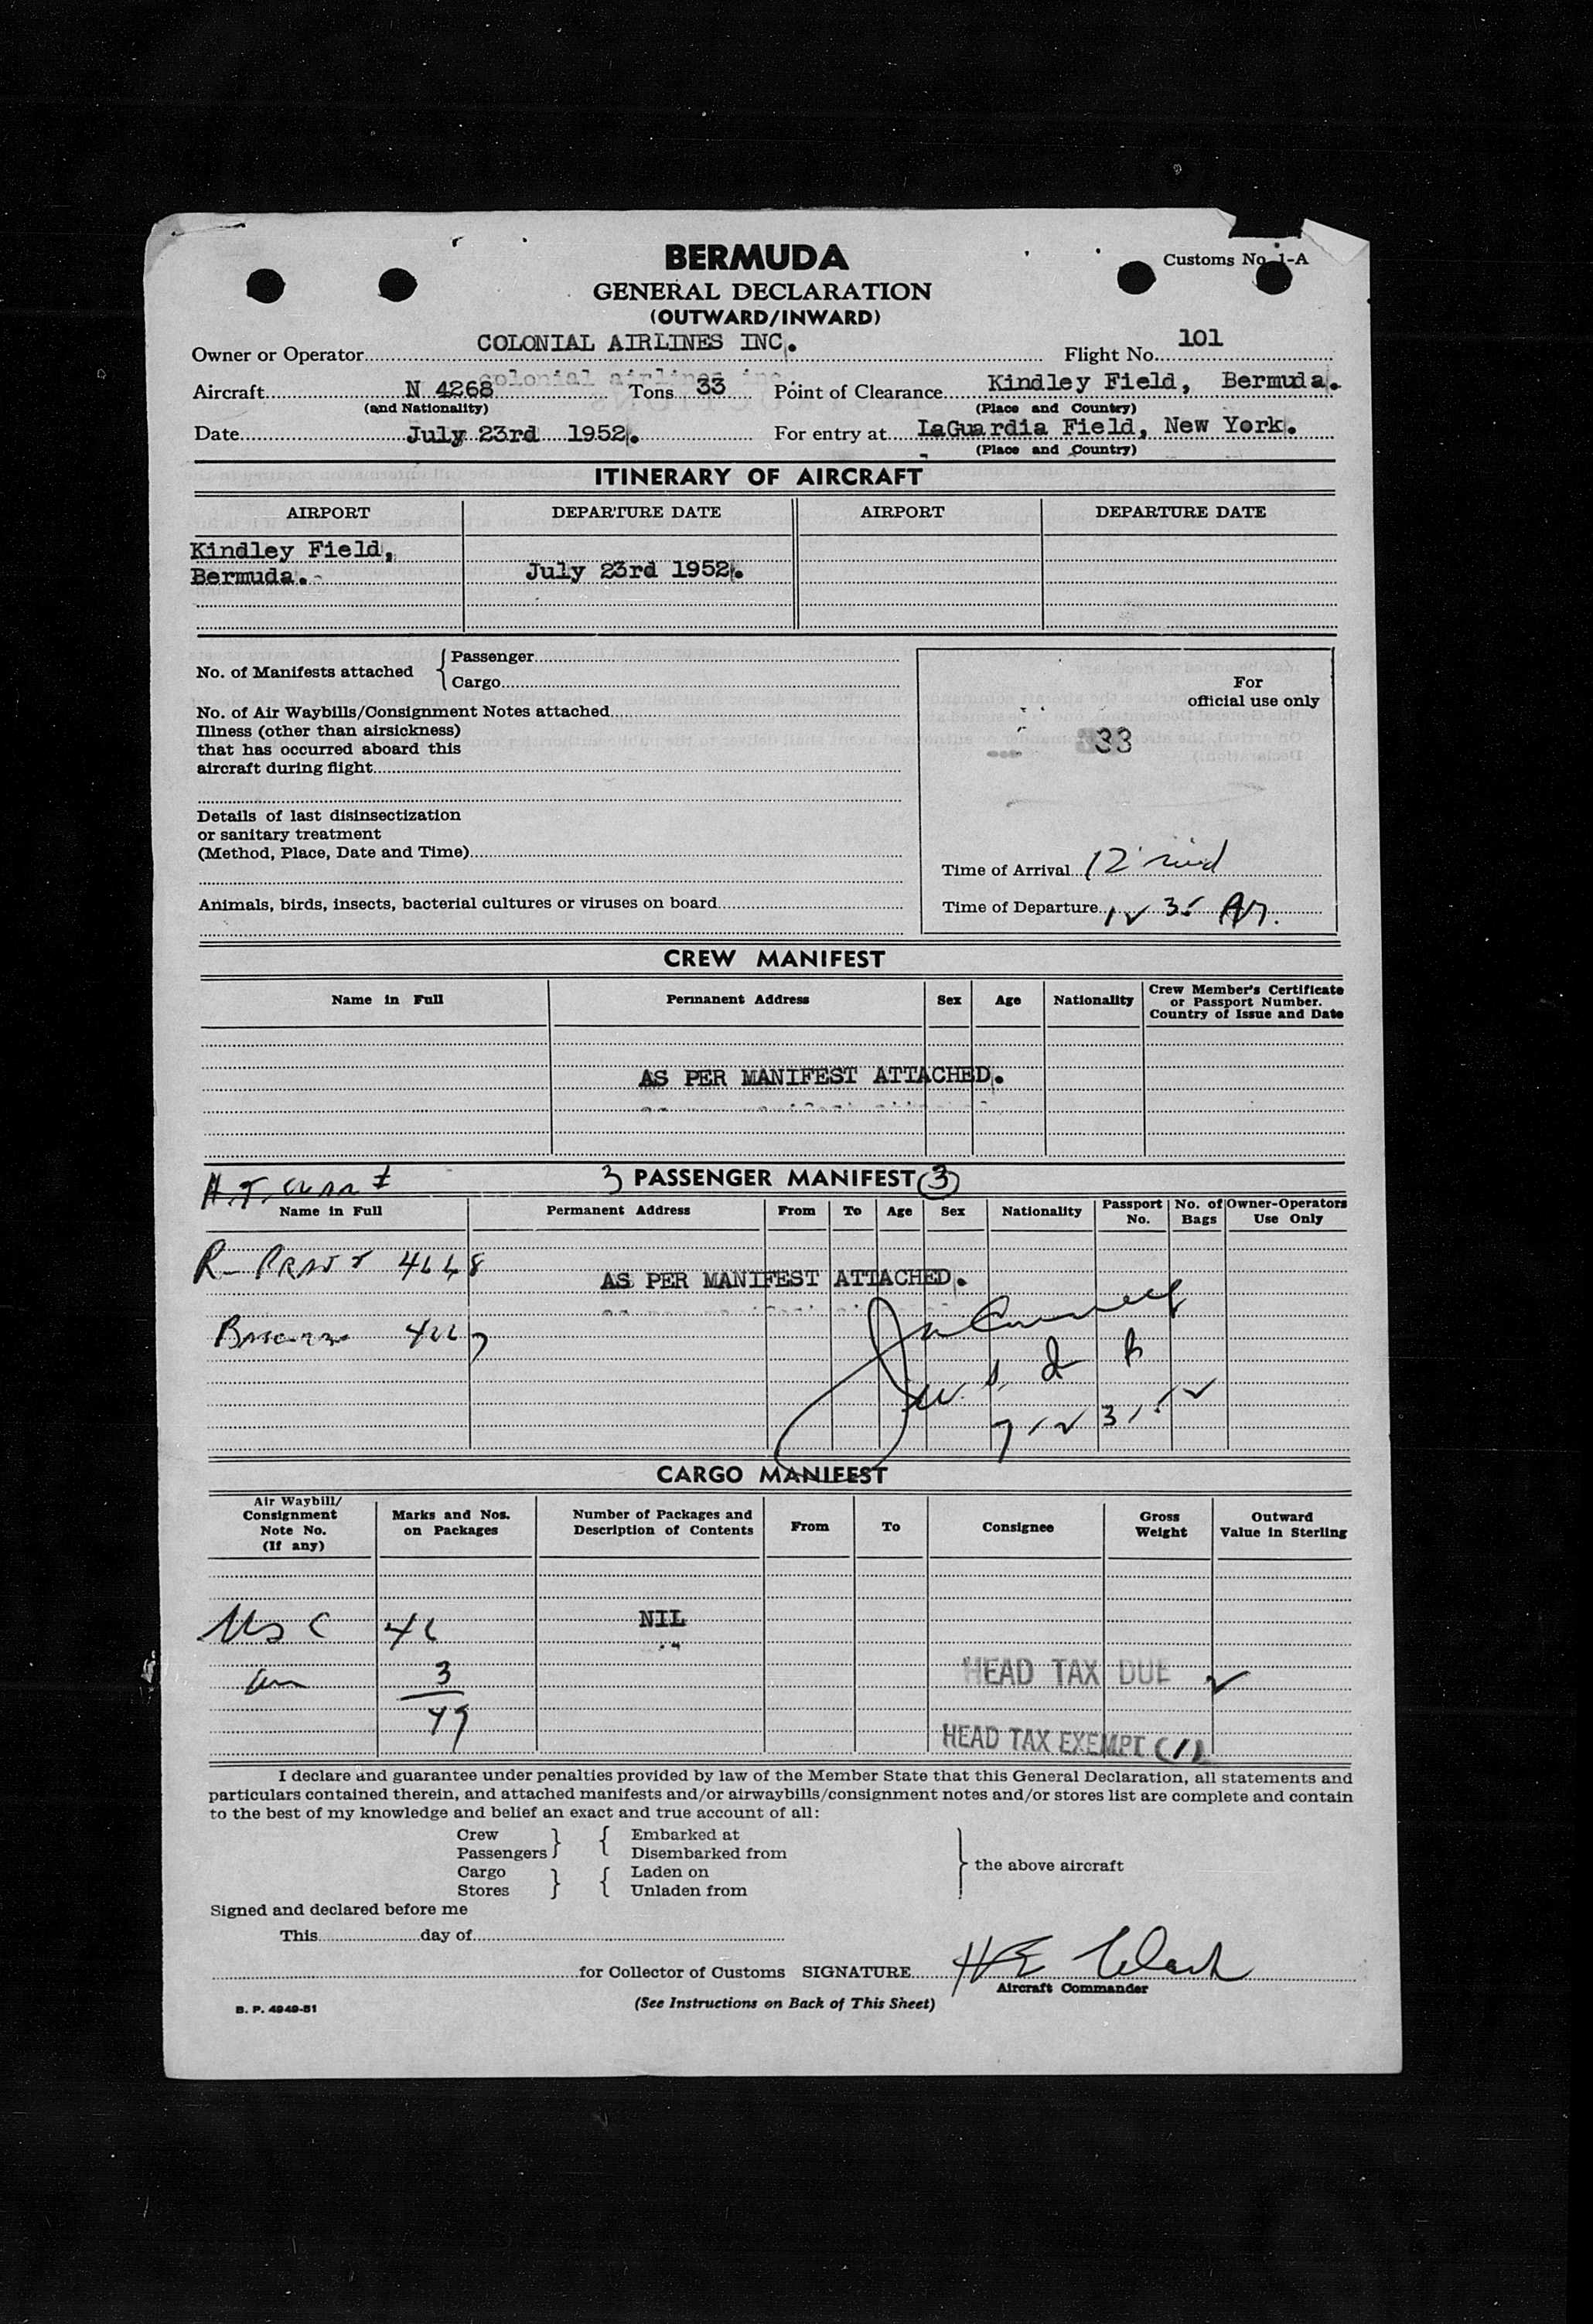 BERMUDA
Customs No. 1-A
GENERAL DECLARATION
(OUTWARD/INWARD)
Owner or Operator COLONIAL AIRLINES INC. Flight No. 101
Aircraft N 4268 Tons 33 Point of Clearance Kindley Field, Bermuda.
(and Nationality) (Place and Country)
Date July 23rd 1952. For entry at LaGuardia Field, New York.
(Place and Country)
ITINERARY OF AIRCRAFT
AIRPORT DEPARTURE DATE AIRPORT DEPARTURE DATE
Kindley Field,
Bermuda. July 23rd 1952.
No. of Manifests attached { Passenger
Cargo
For
official use only
No. of Air Waybills/Consignment Notes attached
Illness (other than airsickness)
that has occurred aboard this
aircraft during flight
33
Details of last disinsectization
or sanitary treatment
(Method, Place, Date and Time)
Time of Arrival 12 mid
Animals, birds, insects, bacterial cultures or viruses on board
Time of Departure 12 35 AM.
CREW MANIFEST
Name in Full Permanent Address Sex Age Nationality Crew Member's Certificate
or Passport Number.
Country of Issue and Date
AS PER MANIFEST ATTACHED.
3 PASSENGER MANIFEST (3)
Name in Full Permanent Address From To Age Sex Nationality Passport No. No. of Bags Owner-Operators Use Only
AS PER MANIFEST ATTACHED.
CARGO MANIFEST
Air Waybill/
Consignment
Note No.
(If any)
Marks and Nos.
on Packages
Number of Packages and
Description of Contents
From To Consignee
Gross
Weight
Outward
Value in Sterling
USC 46 NIL
3
49
HEAD TAX DUE
HEAD TAX EXEMPT (1)
I declare and guarantee under penalties provided by law of the Member State that this General Declaration, all statements and
particulars contained therein, and attached manifests and/or airwaybills/consignment notes and/or stores list are complete and contain
to the best of my knowledge and belief an exact and true account of all:
Crew } { Embarked at
Passengers Disembarked from
Cargo } { Laden on } the above aircraft
Stores Unladen from
Signed and declared before me
This day of
for Collector of Customs SIGNATURE
Aircraft Commander
B. P. 4949-51
(See Instructions on Back of This Sheet)